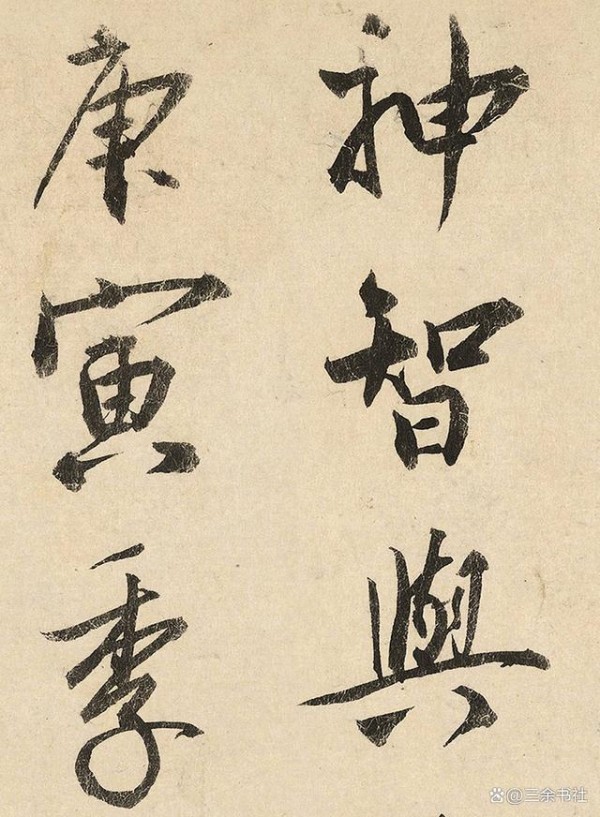 神智與
庚寅季
@三余书社